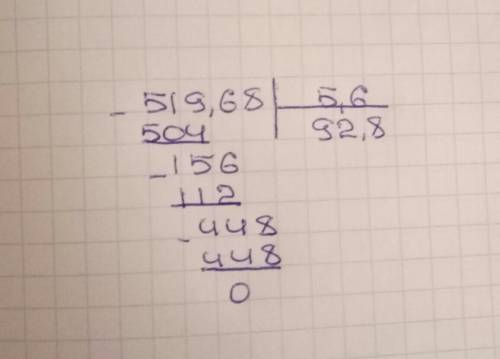 - 519,68 | 5,6
504 92,8
- 156
112
- 448
448
0